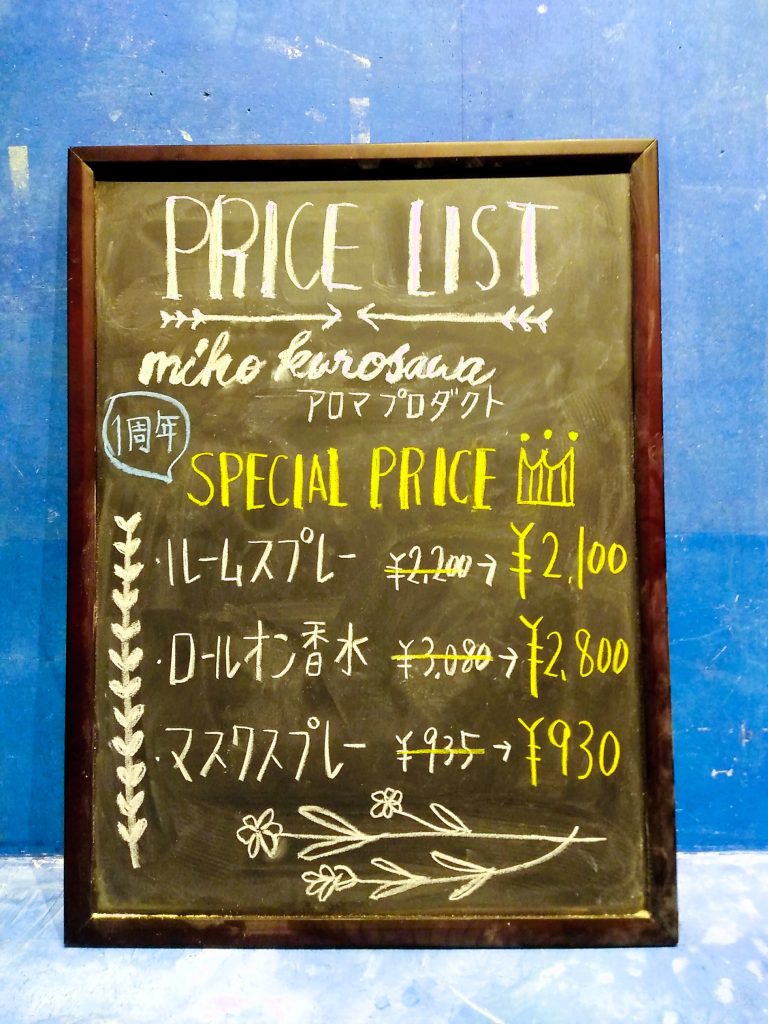 PRICE LIST
miho kurosawa
アロマプロダクト
1周年
SPECIAL PRICE
・ルームスプレー ¥2,200→¥2,100
・ロールオン香水 ¥3,080→¥2,800
・マスクスプレー ¥935→¥930